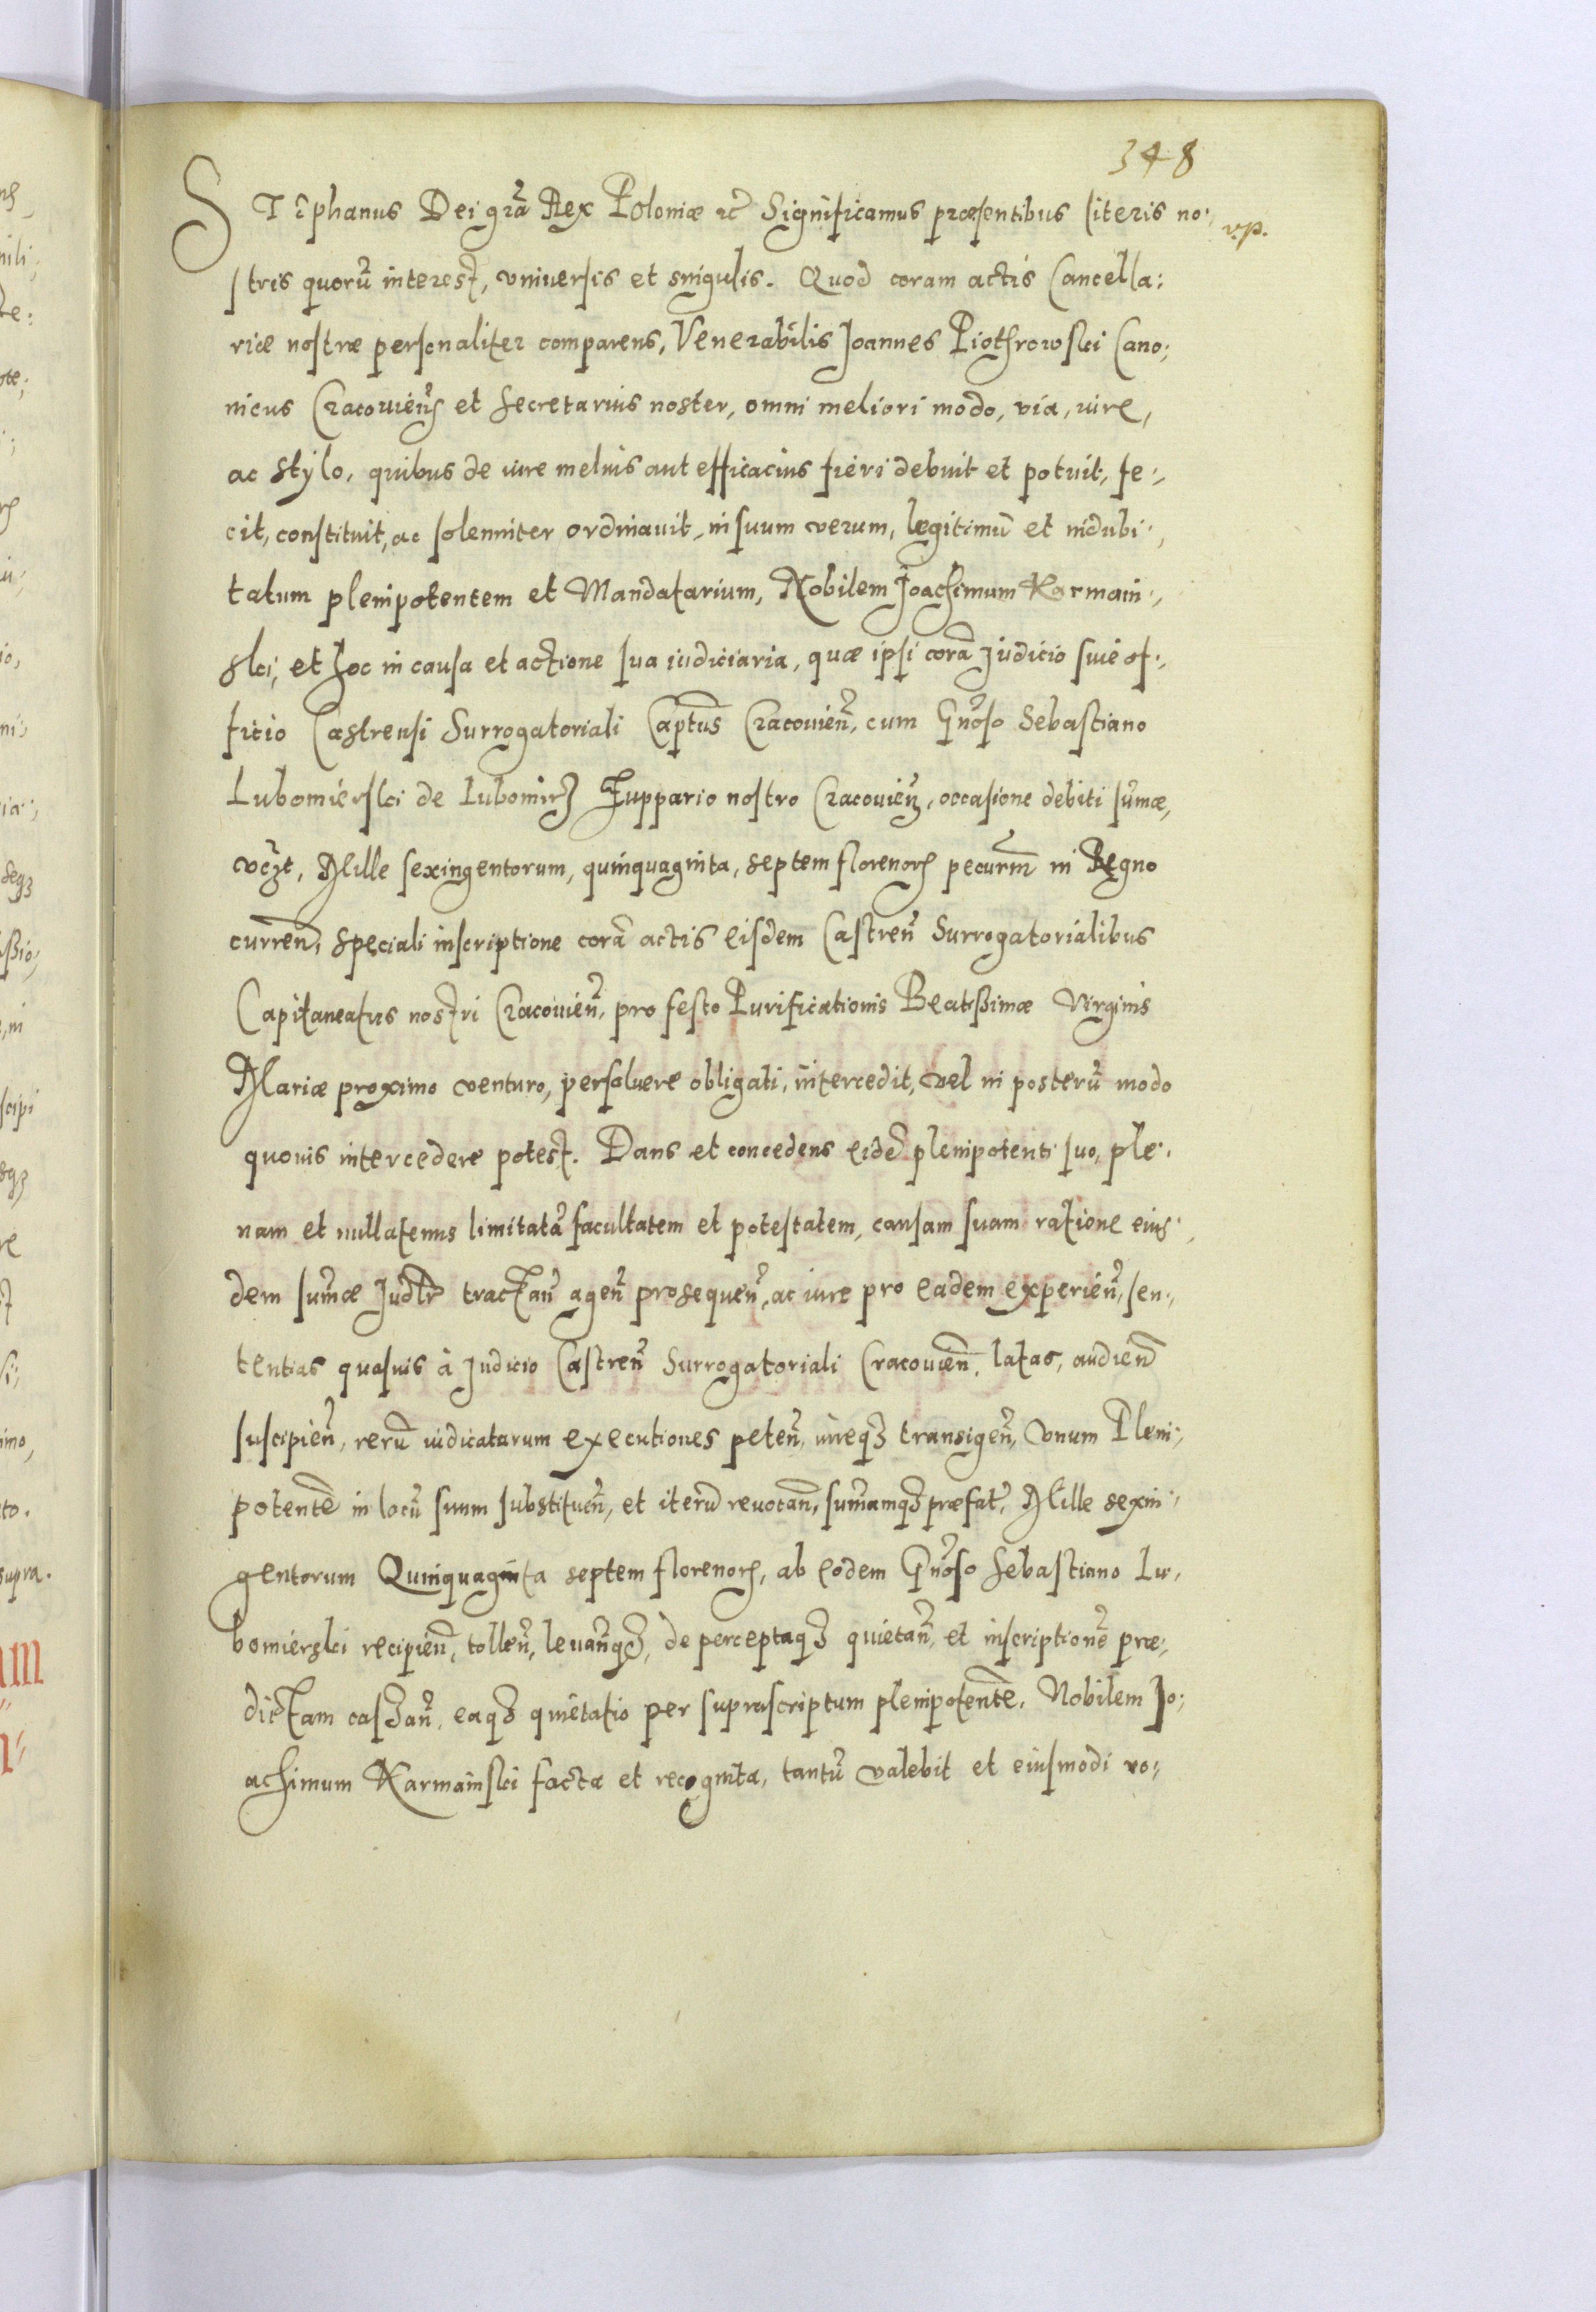 348
STEphanus Dei gr̃a Rex Poloniæ ꝛc̃ Significamus præsentibus literis no-
v.p.
stris quorũ interest, vniuersis et singulis. Quod coram actis Cancella:
riæ nostræ personaliter comparens, Venerabilis Joannes Piothrowski Cano:
nicus Cracouień et Secretarius noster, omni meliori modo, via, iure,
ac stylo, quibus de iure melius aut efficacius fieri debuit et potuit, fe:
cit, constituit, ac solenniter ordinauit, in suum verum, legitimũ et indubi:
tatum plenipotentem et Mandatarium, Nobilem Joachimum Karmain:
ski, et hoc in causa et actione sua iudiciaria, quæ ipsi corã Judicio siue of:
ficio Castrensi Surrogatoriali Captũs Cracouieñ, cum Gñoso Sebastiano
Lubomierski de Lubomirz Zuppario nostro Cracouieñ, occasione debiti sũmæ,
Mille sexingentorum, quinquaginta, septem florenorꝝ pecuniaꝝ in Regno
curreñ, speciali inscriptione corã actis eisdem Castreñ Surrogatorialibus
Capitaneatus nostri Cracouieñ, pro festo Purificationis Beatißimæ Virginis
Mariæ proximo venturo, persoluere obligati, intercedit, vel in posterũ modo
quouis intercedere potest. Dans et concedens eidẽ plenipotenti suo, ple:
nam et nullatenus limitatã facultatem et potestatem, causam suam ratione eius:
dem sũmæ Judr̃ tractañ ageñ prosequeñ, ac iure pro eadem experieñ, sen:
tentias quasuis à Judicio Castreñ Surrogatoriali Cracouieñ, latas, audieñ
suscipieñ, rerũ iudicatarum executiones peteñ, iureqꝫ transigeñ, vnum Pleni:
potentẽ in locũ suum substitueñ, et iterũ reuocañ, sum̃amqꝫ præfat̃, Mille sexin:
gentorum Quinquaginta septem florenorꝝ, ab eodem Gñoso Sebastiano Lu:
bomierski recipieñ, tolleñ, leuañqꝫ, de perceptaqꝫ quietañ, et inscriptionẽ præ:
dictam cassañ, eaqꝫ quietatio per suprascriptum plenipotentẽ, Nobilem Jo:
achimum Karmainski facta et recognita, tantũ valebit et eiusmodi ro: